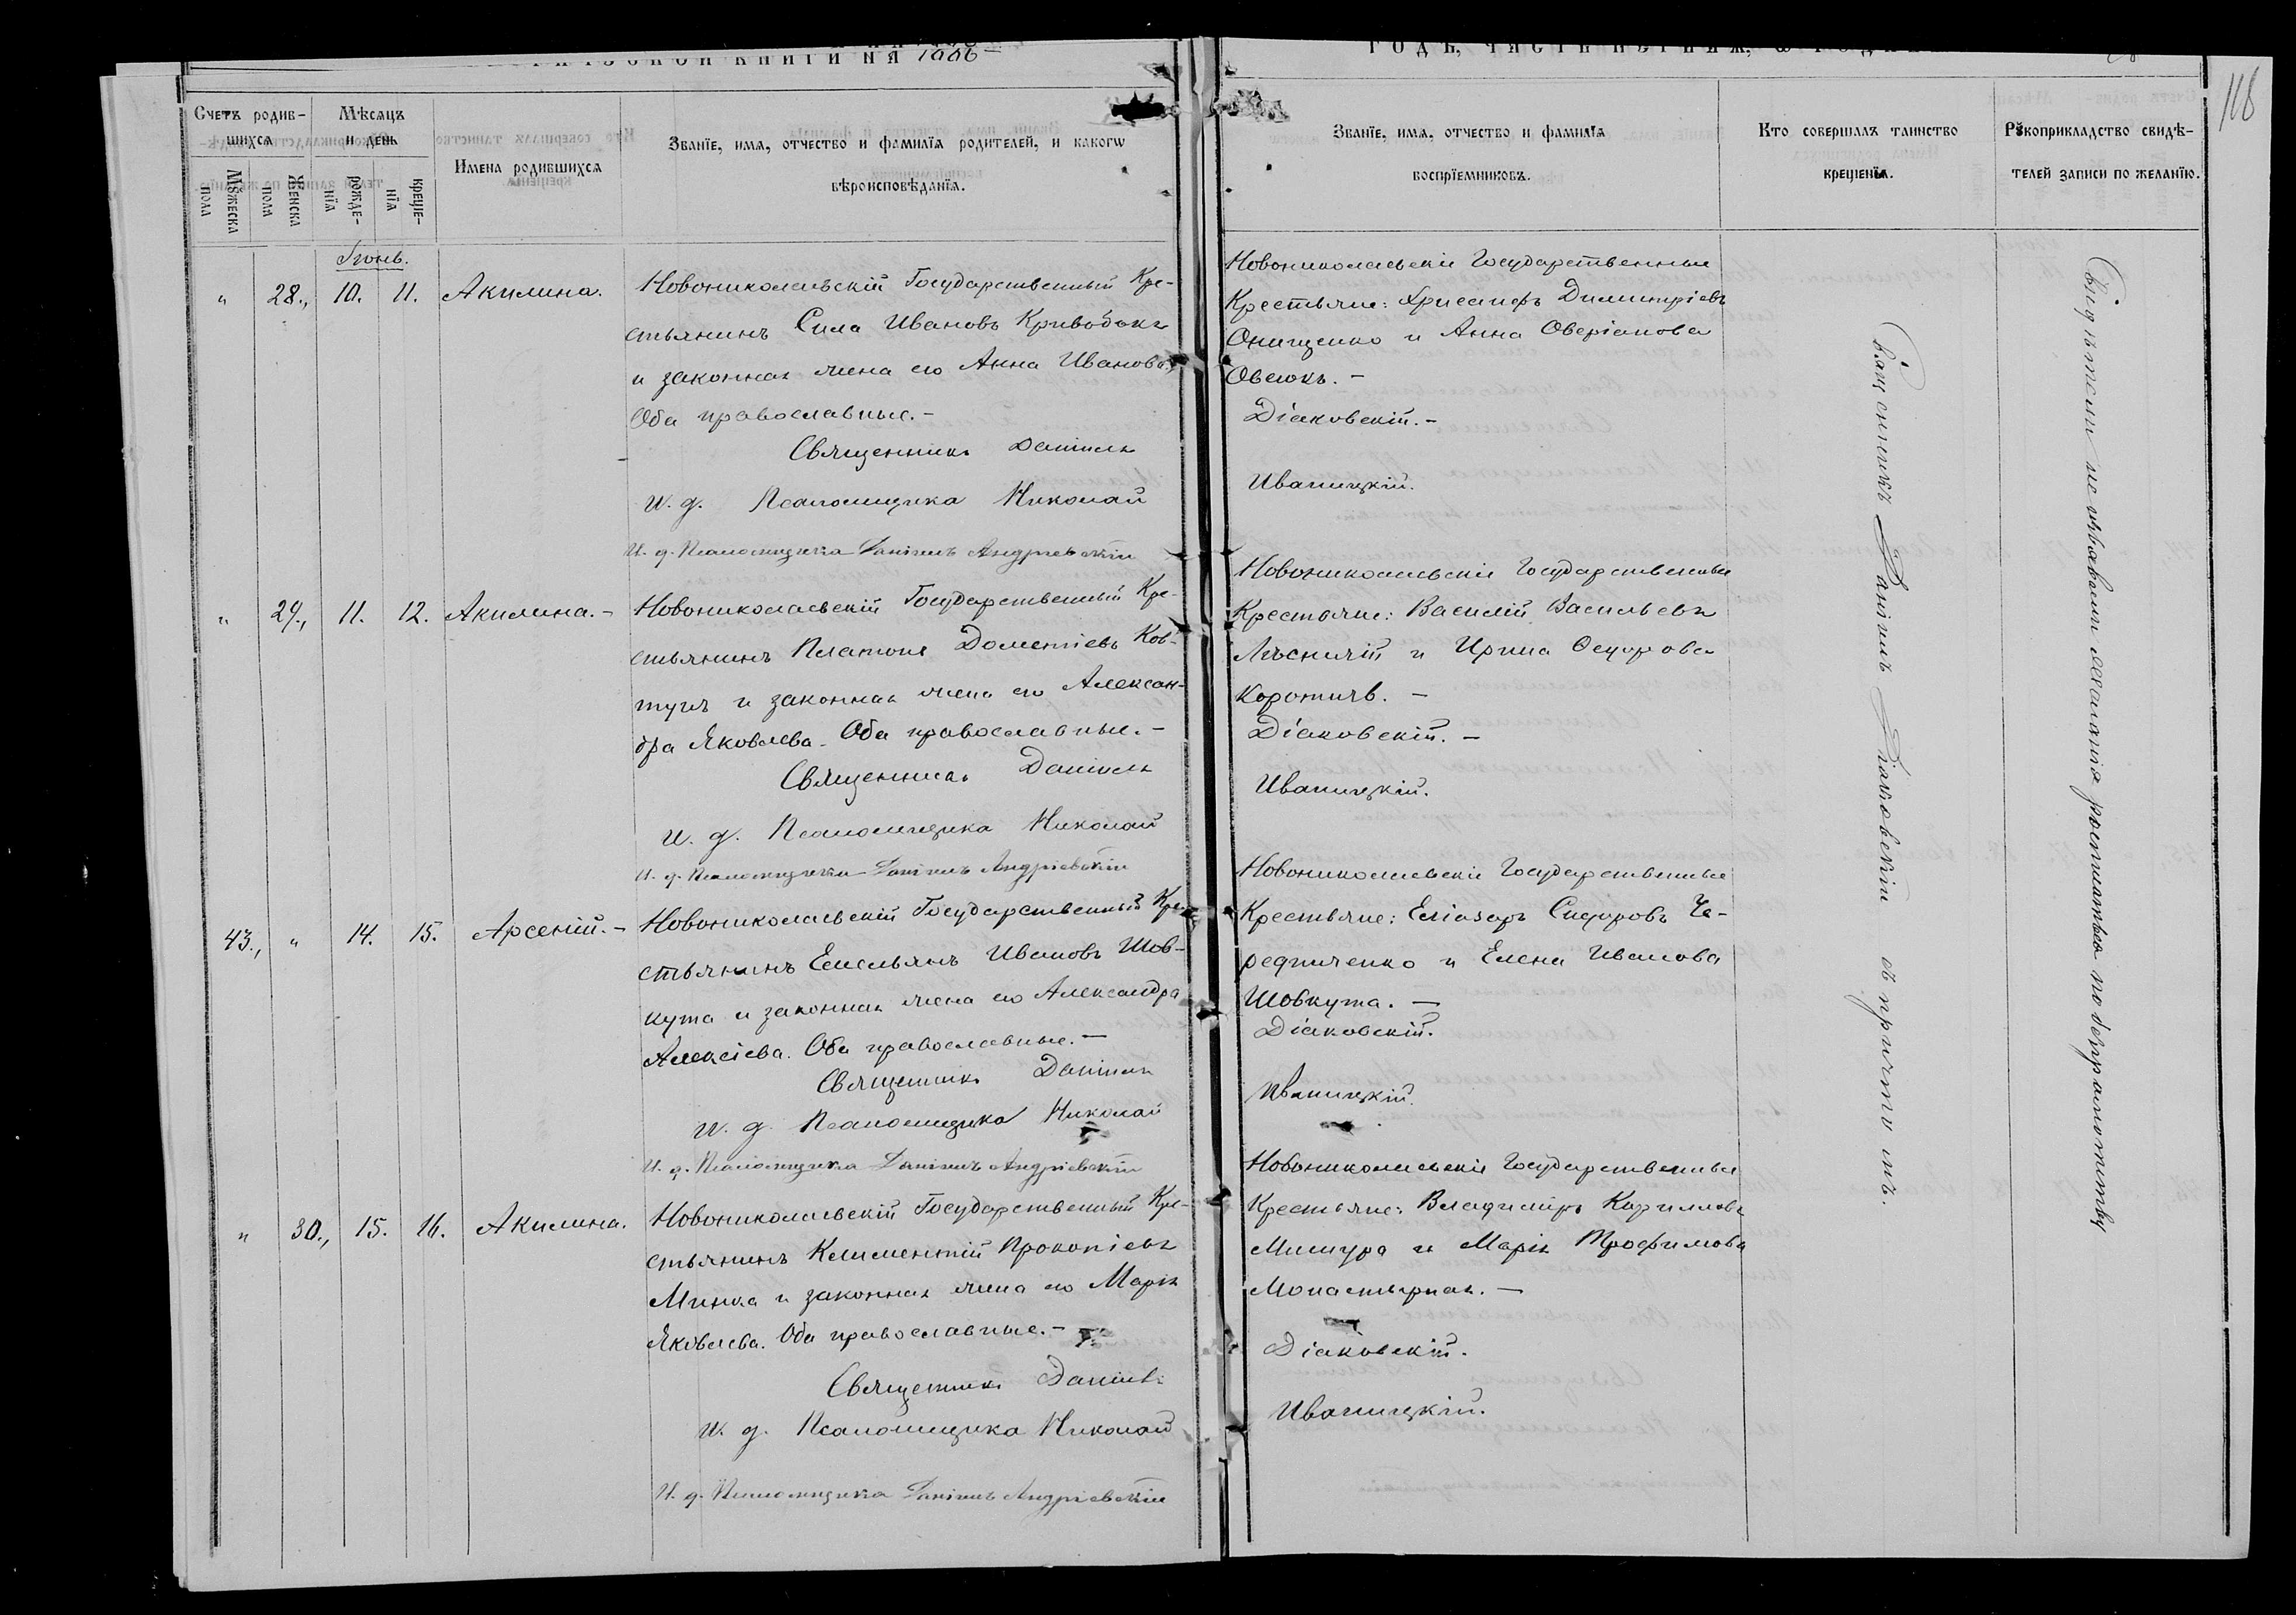 КНИГИ НА 1886
ГОДЪ, ЧАСТИ ПЕРВЫЯ, Ѡ РОДИВ
118
Счетъ родив-
шихся
Мѣсяцъ
и день
Имена родившихся
Званїе, имя, отчество и фамилїя родителей, и какогѡ
вѣроисповѣданїя.
Мꙋжеска
пола
Женска
пола
рожде-
нїя
креще-
нїя
Званїе, имя, отчество и фамилїя
воспрїемниковъ.
Кто совершалъ таинство
крещенїя.
Рꙋкоприкладство свидѣ-
телей записи по желанїю.
Іюнь.
" 28., 10. 11. Акилина.
Новониколаевскій Государственный Кре-
стьянинъ Сила Ивановъ Кривобокъ
и законная жена его Анна Иванова,
Оба православные.-
Священникъ Даніилъ
И. д. Псаломщика Николай
И. д. Псаломщика Даніилъ Андріевскій
Новониколаевскіе Государственные
Крестьяне: Хрисанфъ Димитріевъ
Онищенко и Анна Оверіанова
Овсюкъ.-
Діаковскій.-
Иваницкій.
" 29., 11. 12. Акилина.-
Новониколаевскій Государственный Кре-
стьянинъ Платонъ Дометіевъ Ков-
тунъ и законная жена его Алексан-
дра Яковлева. Оба православные.-
Священникъ Даніилъ
И. д. Псаломщика Николай
И. д. Псаломщика Даніилъ Андріевскій
Новониколаевскіе Государственные
Крестьяне: Василій Васильевъ
Лѣсничій и Ирина Ѳедорова
Коротичъ.-
Діаковскій.-
Иваницкій.
43., " 14. 15. Арсеній.-
Новониколаевскій Государственный Кре-
стьянинъ Емельянъ Ивановъ Шов-
кута и законная жена его Александра
Алексіева. Оба православные.-
Священникъ Даніилъ
И. д. Псаломщика Николай
И. д. Псаломщика Даніилъ Андріевскій
Новониколаевскіе Государственные
Крестьяне: Еліазаръ Сидоровъ Че-
редниченко и Елена Иванова
Шовкута.-
Діаковскій.
Иваницкій.
" 30., 15. 16. Акилина.
Новониколаевскій Государственный Кре-
стьянинъ Климентій Прокопіевъ
Минка и законная жена его Марія
Яковлева. Оба православные.-
Священникъ Даніилъ
И. д. Псаломщика Николай
И. д. Псаломщика Даніилъ Андріевскій
Новониколаевскіе Государственные
Крестьяне: Владиміръ Кирилловъ
Мишура и Марія Трофимова
Монастырная.-
Діаковскій.
Иваницкій.
Священникъ Даніилъ Діаковскій съ причтомъ.
Свидѣтели не изъявили желанія росписаться по безграмотству